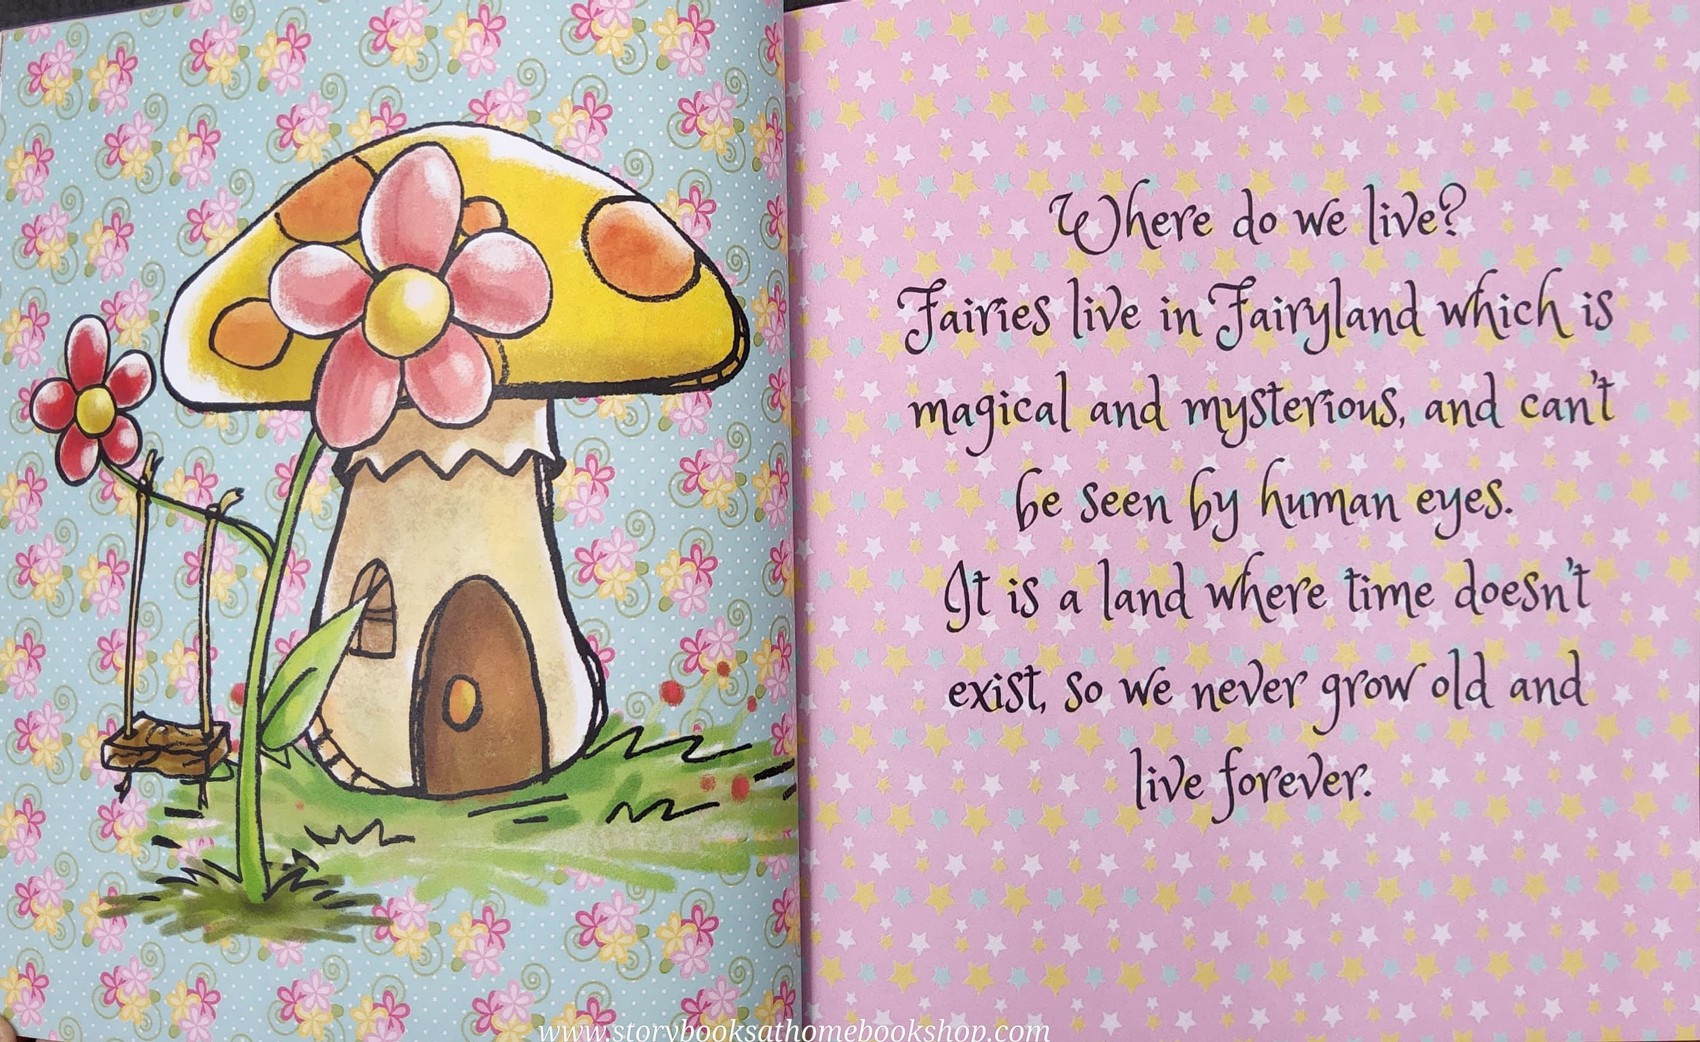 Where do we live?
Fairies live in Fairyland which is
magical and mysterious, and can't
be seen by human eyes.
It is a land where time doesn't
exist, so we never grow old and
live forever.
www.storybooksathomebookshop.com